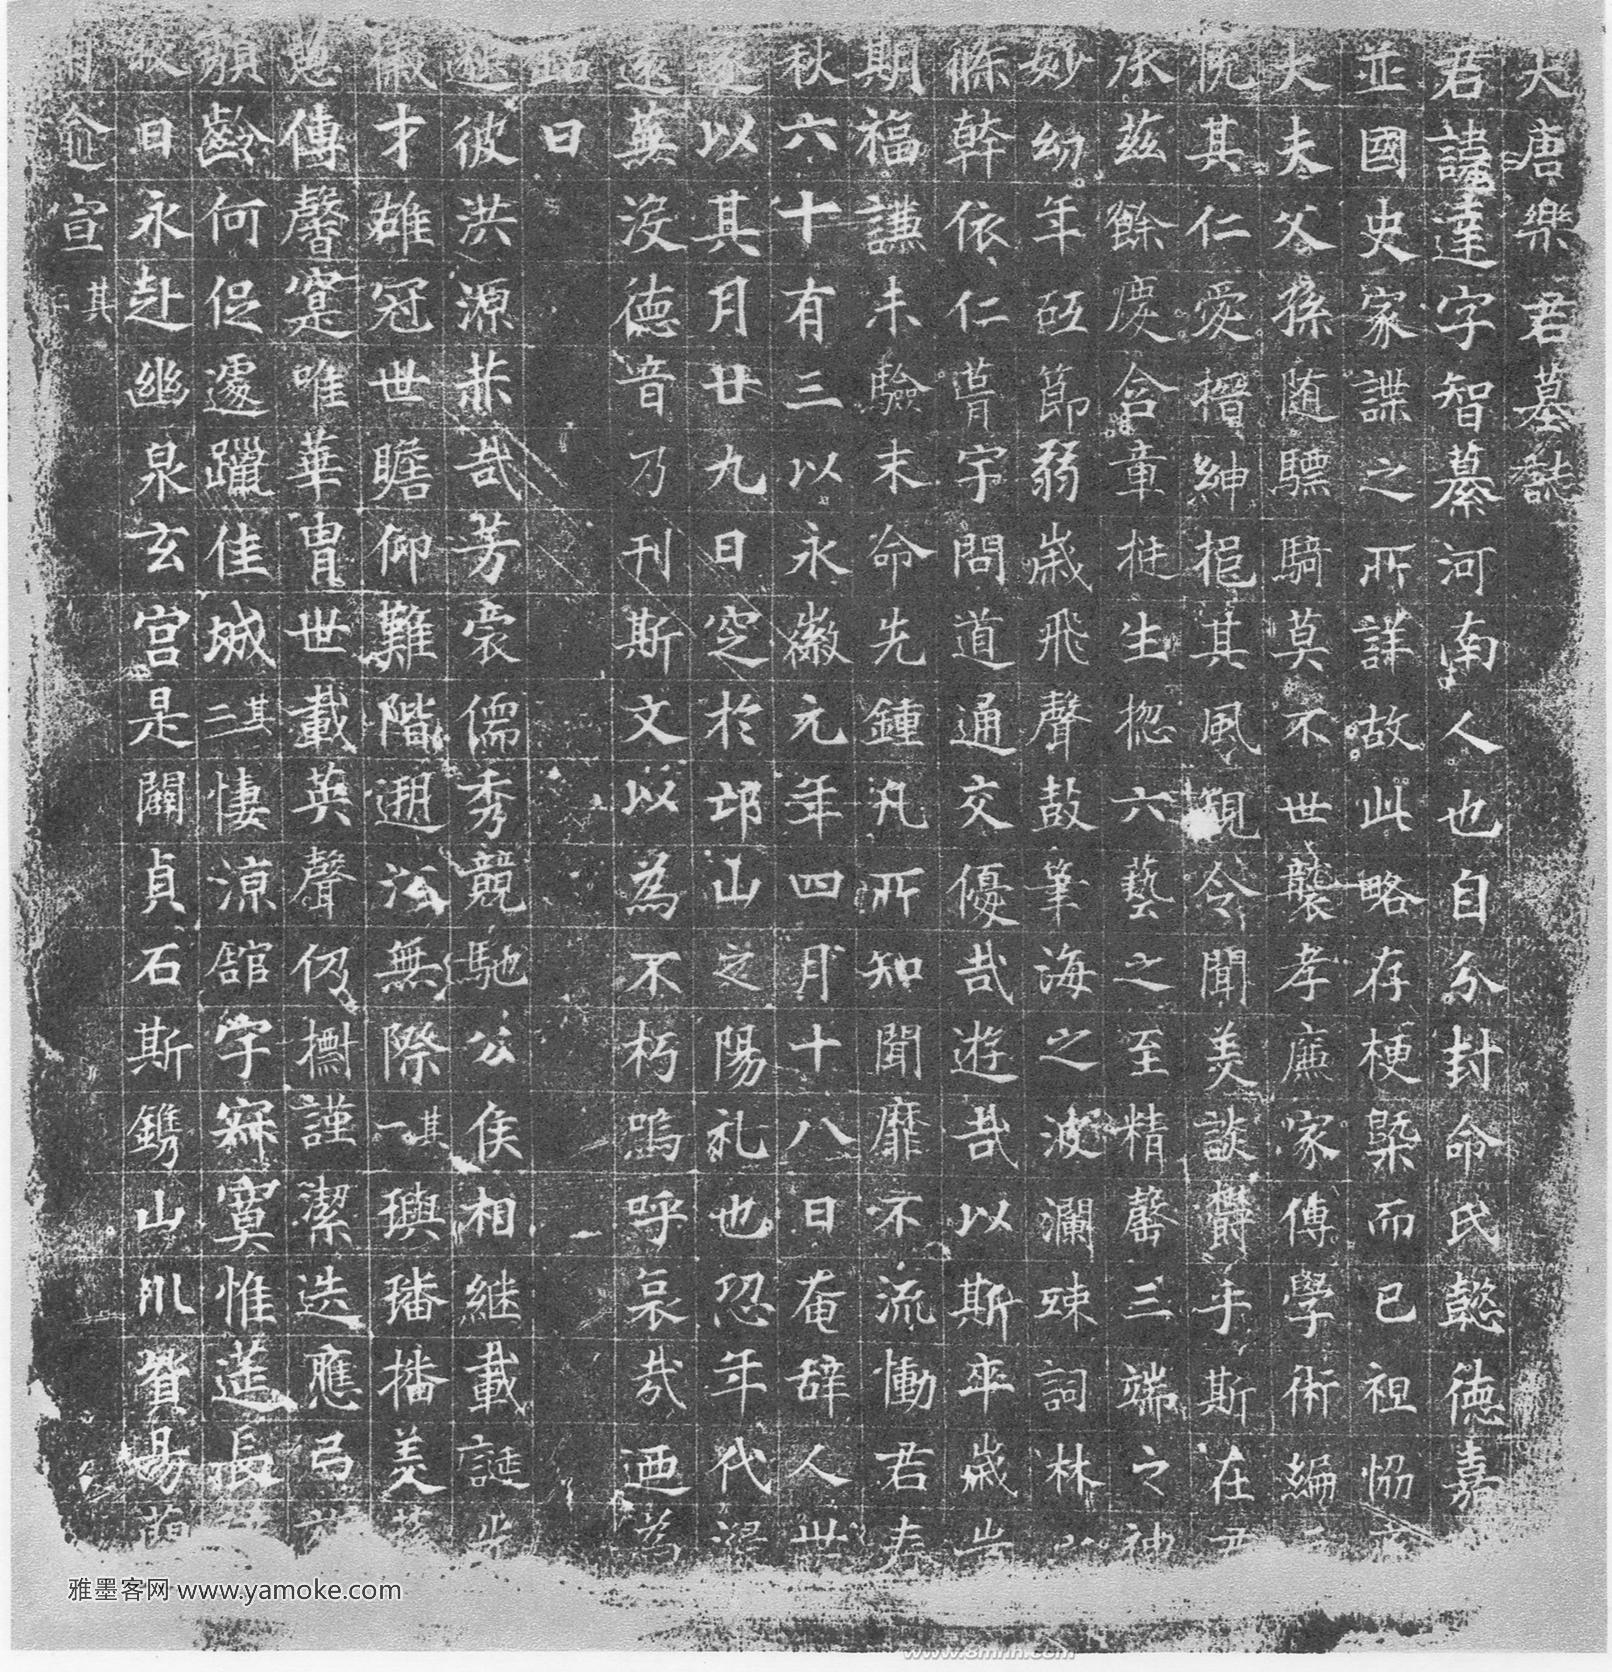 大唐樂君墓誌
君諱達字智蓁河南人也自分封命氏懿德嘉
並國史家諜之所詳故此略存梗槩而已祖恊
大夫父孫随驃騎莫不世襲孝廉家傳學術編
悦其仁愛搢紳挹其風覌令聞美談欝乎斯在
承茲餘慶含章挺生揔六藝之至精罄三端之神
妙幼年砥節弱歲飛聲鼓筆海之波瀾竦詞林
條幹依仁葺宇問道通交優哉遊哉以斯卒歲
期福謙未驗末命先鍾凡所知聞靡不流慟君春
秋六十有三以永徽元年四月十八日奄辞人世
以其月廿九日窆於邙山之陽礼也恐年代
遠蕪没德音乃刊斯文以為不朽嗚呼哀哉迺為
銘曰
彼洪源恭哉芳裔儒秀競馳公侯相継載誕
才雄冠世瞻仰難階遡㳂無際其一璵璠播美
傳馨寔唯華胄世載英聲仍擕謹潔迭應弓
齡何促遽躐佳城其二悽涼館宇寂寞惟莚長
日永赴幽泉玄宫是闢貞石斯鐫山川貿易
宣其
雅墨客网 www.yamoke.com